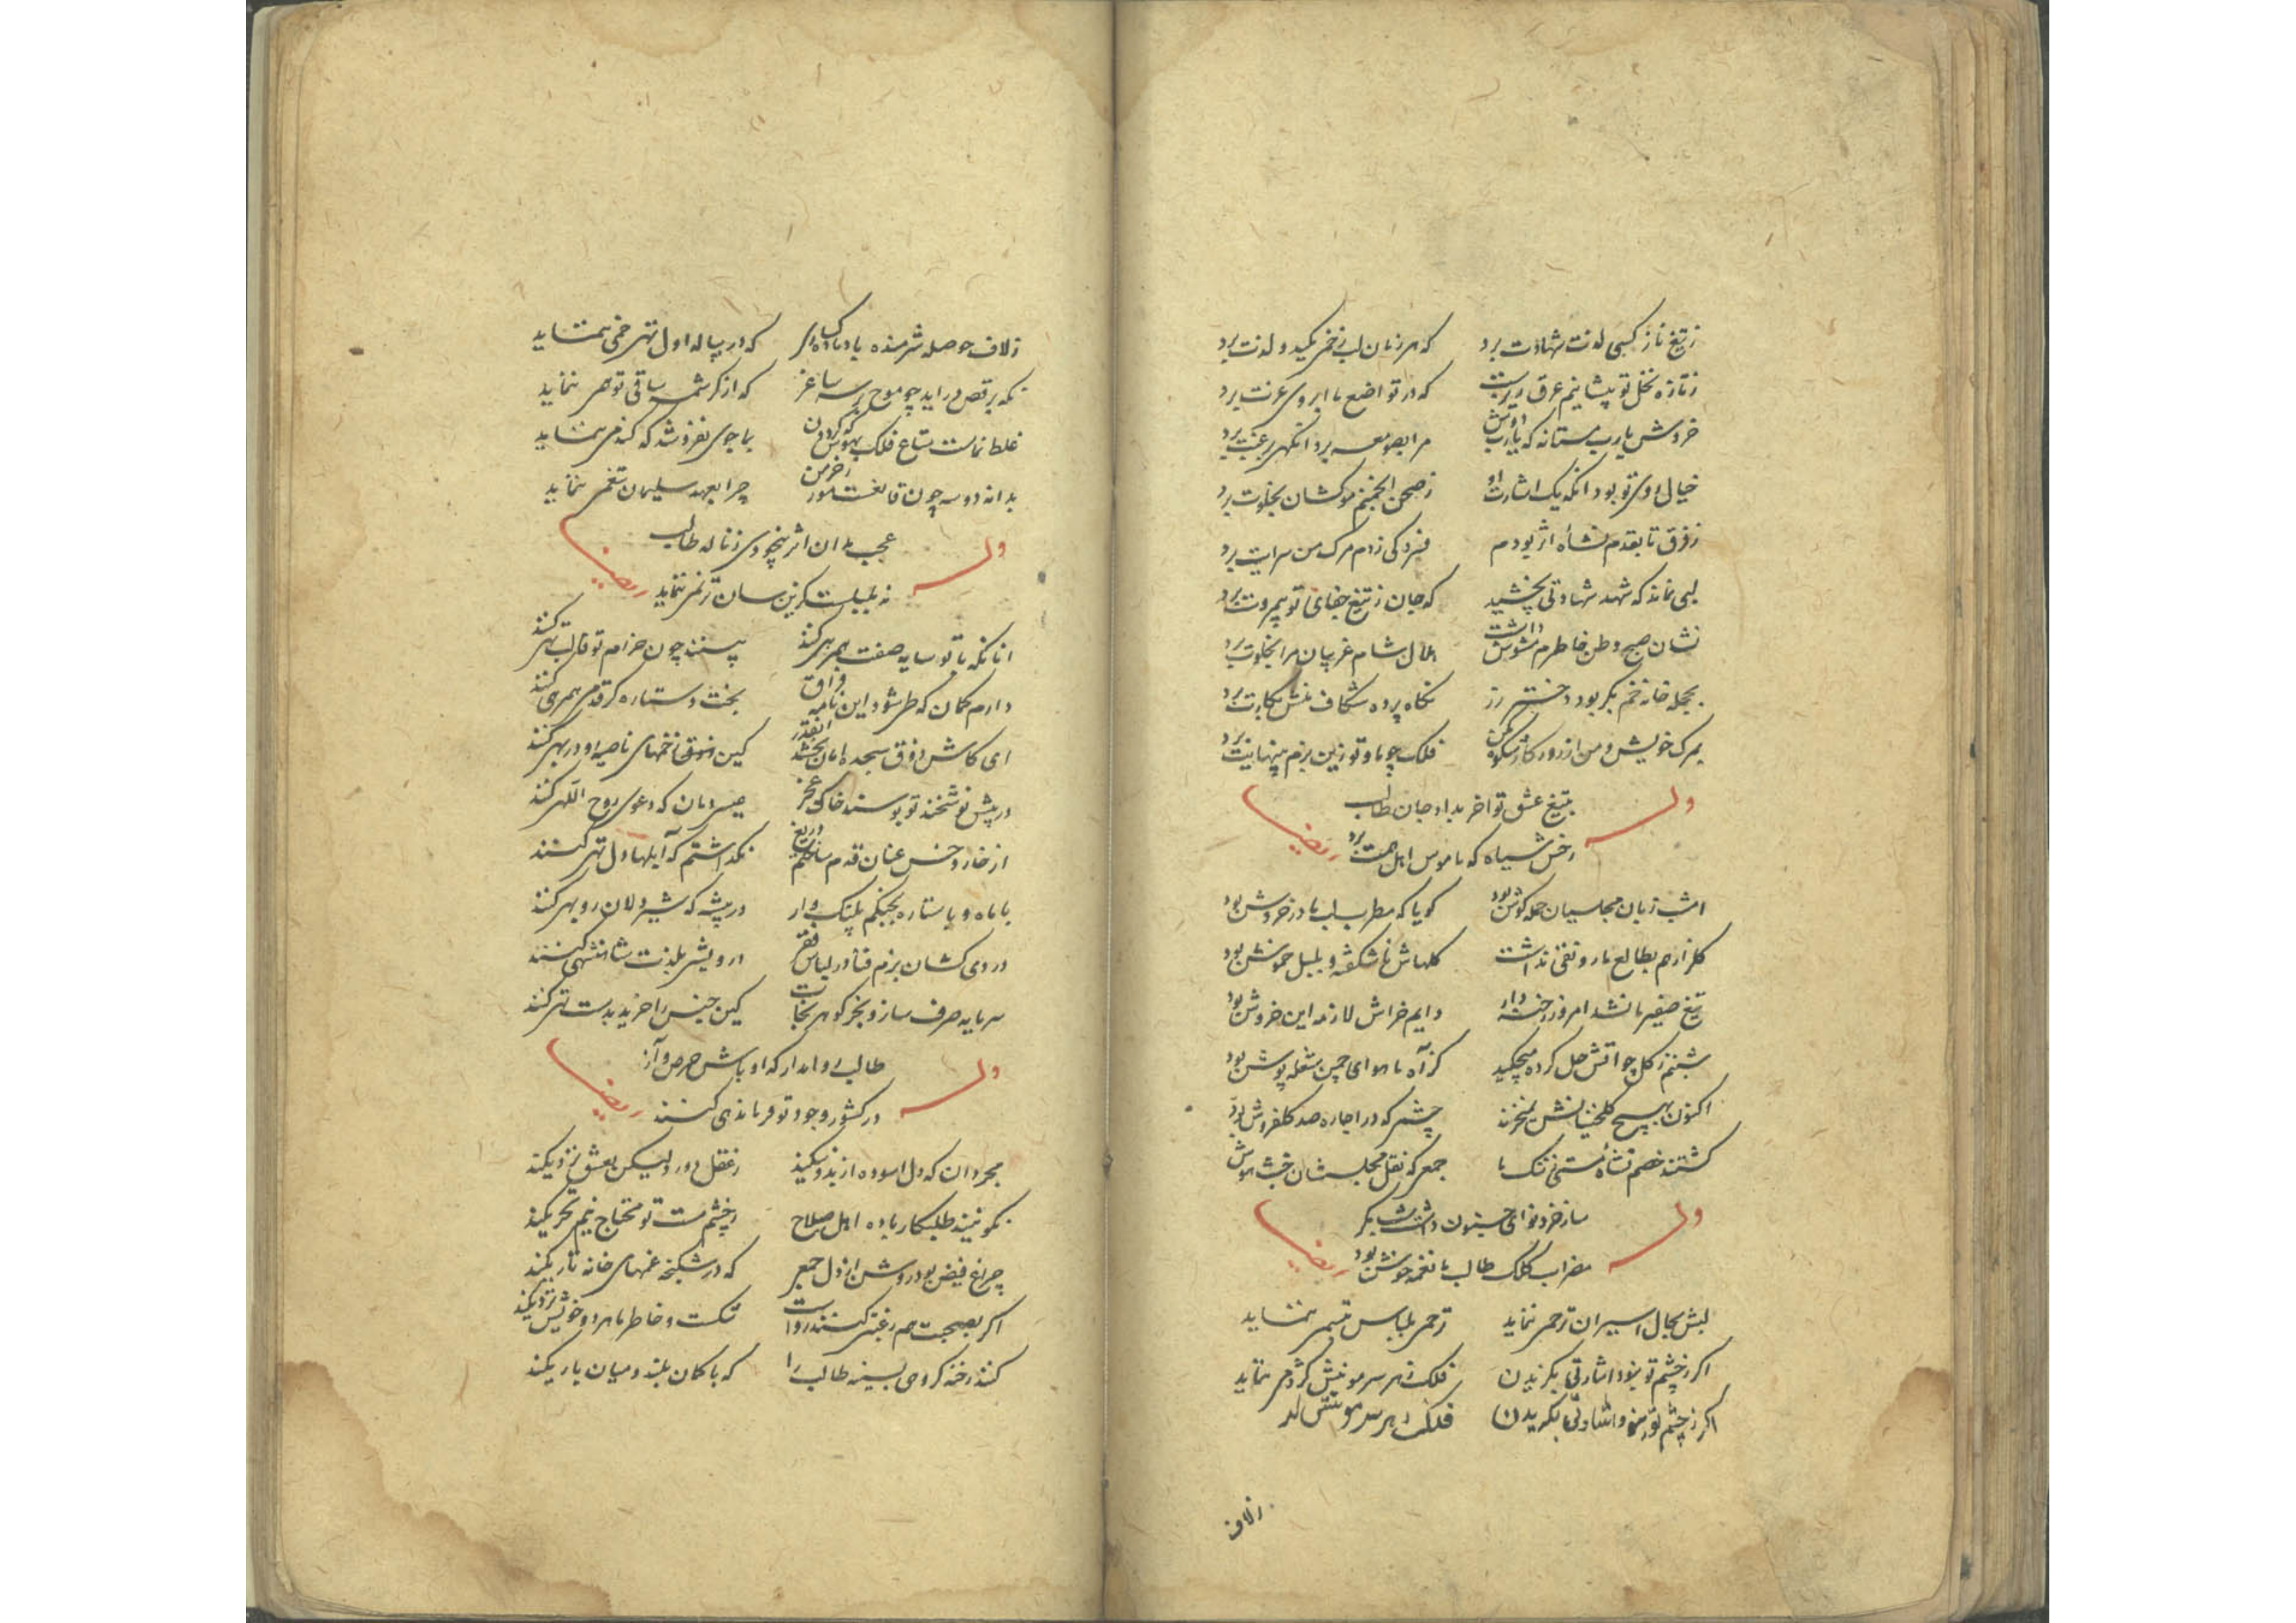 ز تیغ ناز کسی لذت شهادت برد که هر زمان لب زخمی مکید و لذت برد
ز تازه نخل تو پیشانیم عرق ریزست که در تواضع ما ابروی عزت برد
خروش یارب مستانه که یارب دوش مرا بصومعه برد انکهی برغبت برد
خیال اوی تو بود انکه یک اشارت او ز صحن انجمنم موکشان بخلوت برد
ز فرق تا بقدم نشأه اثر بودم
لبی نماند که شهد شهادتی نچشید که جان ز تیغ جفای تو بیمروت برد
نشان صبح وطن خاطرم مشوش داشت ملال شام غریبان مرا بخلوت برد
بحجله خانه خم بکر بود دختر رز نگاه پرده شکاف منش بکارت برد
بمرک خویش و من از روزکار شکوه مکن فلک چو ما و تو زین بزم بینهایت برد
وله
بتیغ عشق تو اخر بداد جان طالب
رخش سیاه که ناموس اهل همت برد
ایضا
امشب زبان مجلسیان جمله کوش بود کویا که مطرب لب ما در خروش بود
کلزارم بطالع ما رونقی نداشت کلهاش ناشکفته و بلبل خموش بود
تیغ صفیر ما نشد امروز رخنه دار دایم خراش لازمه این خروش بود
شبنم ز کل چو اتش حل کرده میچکید کز آه ما هوای چمن شعله پوش بود
اکنون بهیچ کلخنیانش نمیخرند چشمی که در اجاره صد کلفروش بود
کشتند خصم نشاه مستی تنک با جمعی که نقل مجلسشان خبث هوش
وله
ساز خرد نوای جنون داشت بکر
مضراب کلک طالب ما نغمه خوش بود
ایضا
لبش بحال اسیران ترحم ننماید ترحمی بلباس تبسم ننماید
اکر ز چشم تو نبود اشارتی بکزیدن فلک ز هر سر مو نیش کژدمی ننماید
اکر ز چشم تو نبود اشارتی بکزیدن فلک ز هر سر مو نیش
زلاف
زلاف حوصله شرمنده باد باده کساری که در پیاله اول تهی خمی ننماید
نکه برقص دراید چو موج بر سر ساغر که از کرشمه ساقی توهمی ننماید
غلط نماست متاع فلک بهوش که کردون بما جوی نفروشد که کندمی ننماید
بدانه دوسه چون قانعست مور ز خرمن چرا بعهد سلیمان تنعمی ننماید
وله
عجب مدان اثر بیخودی ز ناله طالب
نه بلبلیست کزین سان ترنمی ننماید
ایضا
انانکه با تو سایه صفت همرهی کنند بینند چون خرام تو قالب تهی کنند
دارم کمان که طی شود این نامه فراق بخت و ستاره کر قدمی همرهی کنند
ای کاش ذوق سجده امان بخشد انقدر کین ناخنهای ناصیه او در بهی کنند
در پیش نوشخند تو بوسند خاک عجز عیسی دمان که دعوی روح اللهی کنند
از خار و خس عنان قدم ساختم دریغ نکذاشتم که آبلها دل تهی کنند
با ماه و با ستاره بجنکم پلنک وار در بیشه که شیردلان روبهی کنند
دردی کشان بزم فنا در لباس فقر درویشی بلذت شاهنشهی کنند
سرمایه صرف ساز و بخر کوهر نجات کین جنس را خرید بدست تهی کنند
وله
طالب روا مدار که اوباش حرص و آز
در کشور وجود تو فرماندهی کنند
ایضا
مجردان که دل اسوده از بد و نیکند ز عقل دور ولیکن بعشق نزدیکند
نکو نیند طلبکار باده اهل صلاح ز چشم مست تو محتاج نیم تحریکند
چراغ فیض بود روشن از دل جمعی که در شکنجه غمهای خانه تاریکند
اکر بصحبت هم رغبتی کنند رواست شکست و خاطر ما هر دو خویش نزدیکند
کنند رخنه کروهی بسینه طالب را که با کمان بلند و میان باریکند